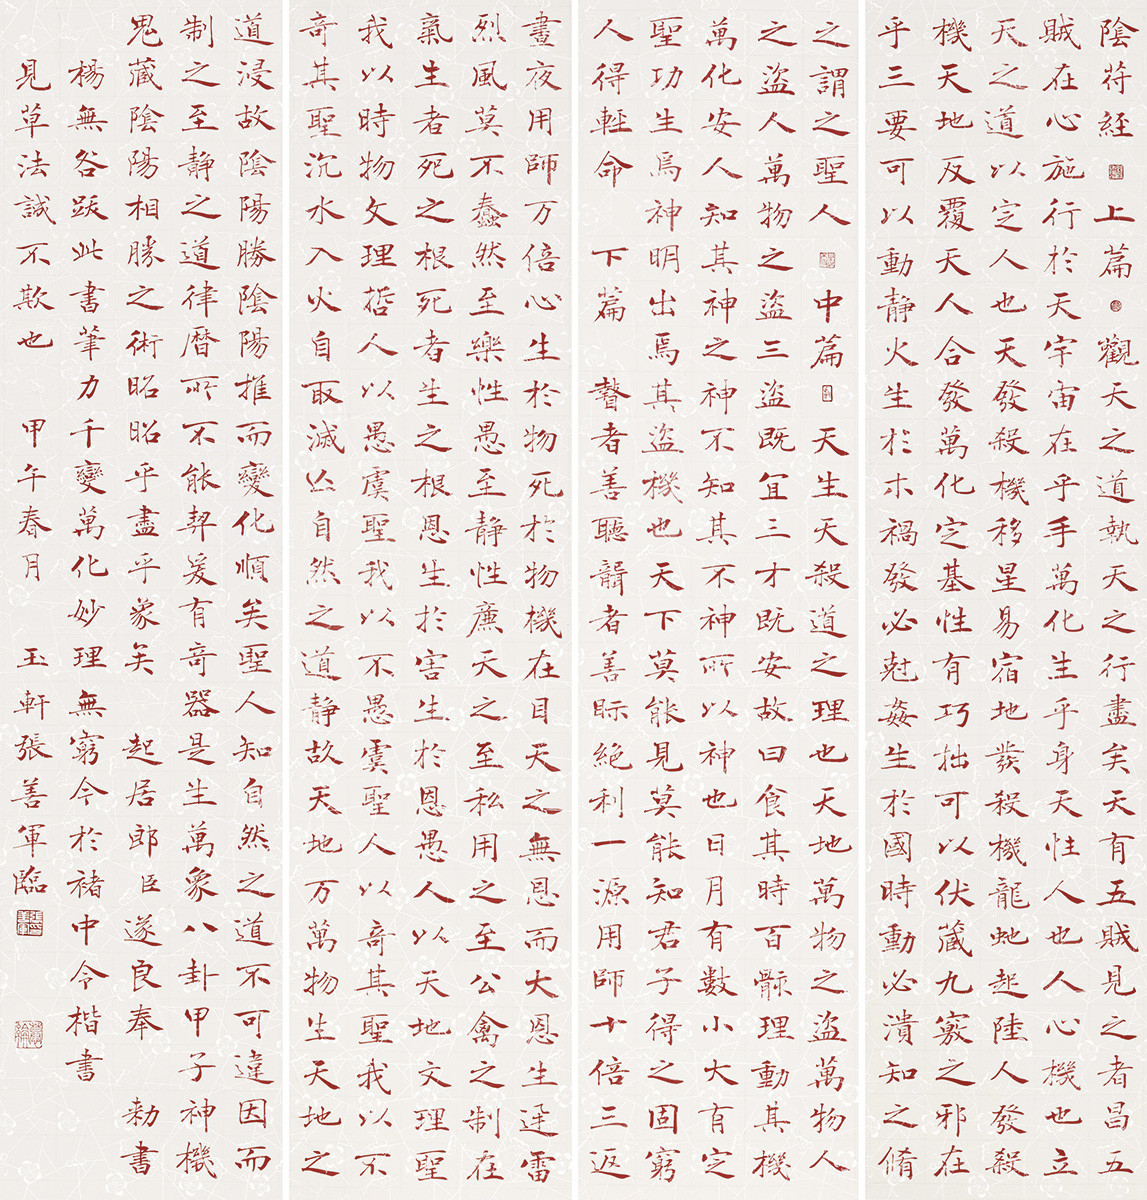 陰符經 上篇 觀天之道執天之行盡矣天有五賊見之者昌五
賊在心施行於天宇宙在乎手萬化生乎身天性人也人心機也立
天之道以定人也天發殺機移星易宿地發殺機龍虵起陸人發殺
機天地反覆天人合發萬化定基性有巧拙可以伏藏九竅之邪在
乎三要可以動静火生於木禍發必尅姦生於國時動必潰知之脩
之謂之聖人 中篇 天生天殺道之理也天地萬物之盜萬物人
之盜人萬物之盜三盜既宜三才既安故曰食其時百骸理動其機
萬化安人知其神之神不知其不神所以神也日月有數小大有定
聖功生焉神明出焉其盜機也天下莫能見莫能知君子得之固窮
人得輕命 下篇 瞽者善聽聾者善眎絶利一源用師十倍三返
晝夜用師万倍心生於物死於物機在目天之無恩而大恩生迅雷
烈風莫不蠢然至樂性愚至静性廉天之至私用之至公禽之制在
氣生者死之根死者生之根恩生於害生於恩愚人以天地文理聖
我以時物文理哲人以愚虞聖我以不愚虞聖人以奇其聖我以不
奇其聖沉水入火自取滅亡自然之道静故天地万萬物生天地之
道浸故陰陽勝陰陽推而變化順矣聖人知自然之道不可違因而
制之至静之道律曆所不能契爰有奇器是生萬象八卦甲子神機
鬼藏陰陽相勝之術昭昭乎盡乎象矣 起居郎臣遂良奉 勑書
楊無咎跋此書筆力千變萬化妙理無窮今於褚中令楷書
見草法誠不欺也 甲午春月 玉軒張善軍臨